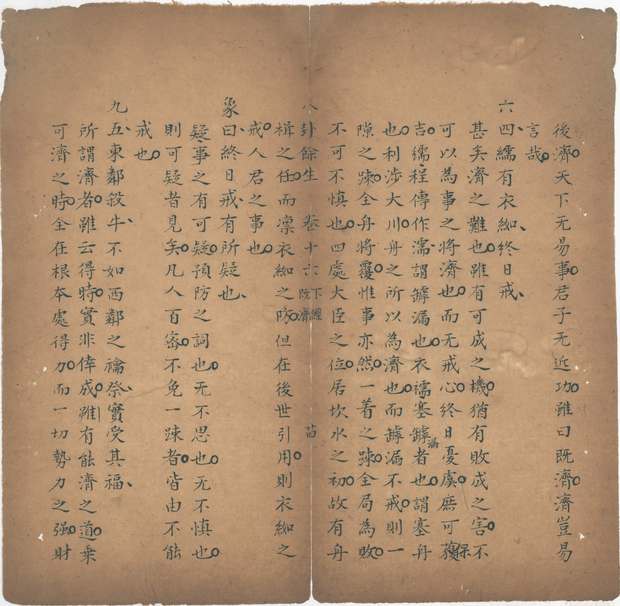 後濟天下无易事君子无近功雖曰既濟濟豈易
言哉
六四繻有衣袽終日戒
甚矣濟之難也雖有可成之機猶有敗成之害不
可以為事之將濟也而无戒心終日憂虞庶可保
吉繻程傳作濡謂罅漏也衣襦塞罅漏者也謂塞舟
也利涉大川舟之所以為濟也而罅漏不戒則一
隙之踈全舟將覆惟事亦然一着之踈全局為敗
不可不慎也四處大臣之位居坎水之初故有舟
八卦餘生 卷十六 下經 既濟
楫之任而凜衣袽之防但在後世引用則衣袽之
戒人君之事也
象曰終日戒有所疑也
疑事之有可疑預防之詞也无不思也无不慎也
則可疑者見矣凡人百密不免一踈者皆由不能
戒也
九五東鄰殺牛不如西鄰之禴祭實受其福
所謂濟者雖云得時實非倖成雖有能濟之道乘
可濟之時全在根本處得力而一切勢力之强財